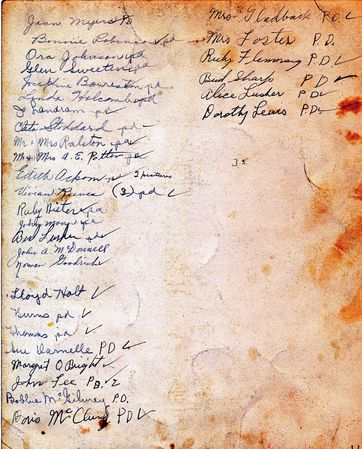 Jean Myers pd
Bonnie Robinson pd
Ora Johnson pd
Glen Sweeten pd
Josephine Boureston pd
Linda Holcomb pd
J Landram pd
Otis Stoddard pd
Mr & Mrs Ralston pd
Mr & Mrs A.E. Potter pd
Edith Ackom pd 2 pictures
Vivian Reeves (2) pd
Ruby Hester pd
pd
Bee Lusher pd
John A. McDonnell
Norman Goodrich
Lloyd Holt ✓
Burns pd ✓
Thomas pd ✓
Sue Darnelle PD ✓
Margret O Bright ✓
John Fee P.D. ✓
Bobbie McGilvrey P.D.
Doris McClung P.D ✓
Mrs Gladback P.D. ✓
Mrs Foster P.D.
Ruby Flemmng P.D. ✓
Bud Sharp P.D ✓
Alice Lusher P.D ✓
Dorothy Lewis P.D. ✓
35